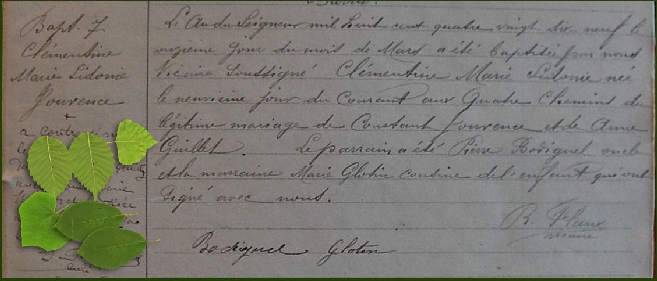 Bapt. 7
Clémentine
Marie Sidonie
Jouvence
+
a contr
L'An du Seigneur mil huit cent quatre vingt dix neuf le
onzième jour du mois de Mars a été baptisée par nous
Vicaire soussigné Clémentine Marie Sidonie née
le neuvième jour du courant aux Quatre Chemins du
légitime mariage de Constant Jouvence et de Anne
Guillet. Le parrain a été Pierre Bodiguel oncle
et la marraine Marie Glotin cousine de l'enfant qui ont
signé avec nous.
R. Flaux
vicaire
Bodiguel Glotin